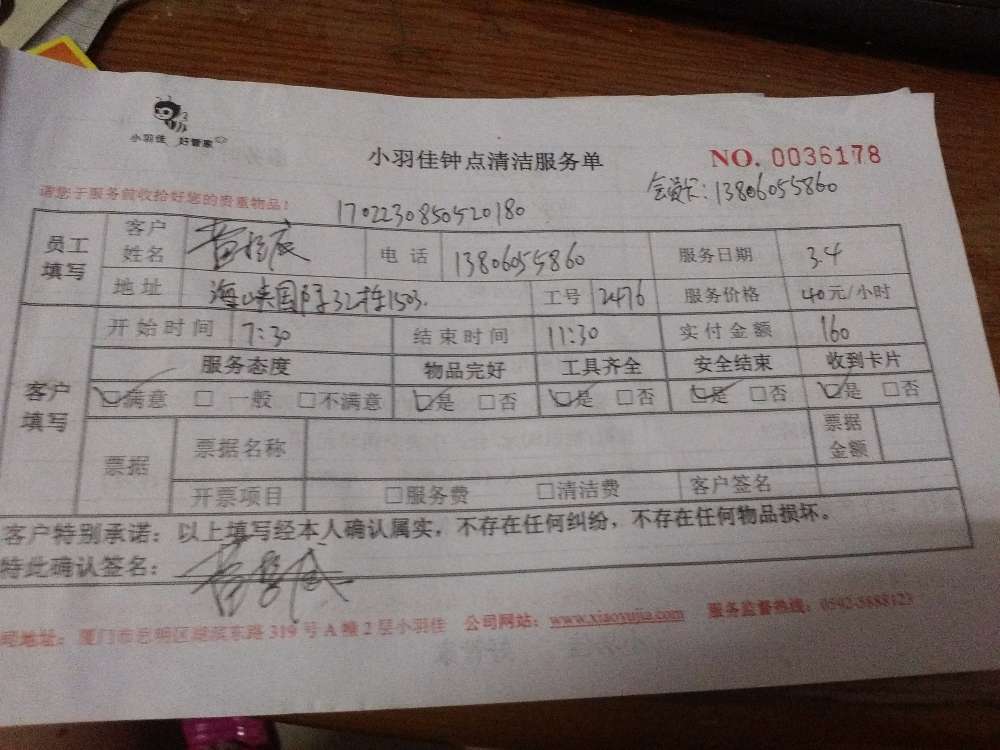 小羽佳 好管家
小羽佳钟点清洁服务单
NO. 0036178
请您于服务前收拾好您的贵重物品！
会员卡：13806055860
1702230850520180
员工填写
客户姓名
电 话 13806055860
服务日期 3.4
地 址 海峡国际32栋1503.
工号 2476
服务价格 40元/小时
客户填写
开始时间 7:30
结束时间 11:30
实付金额 160
服务态度 物品完好 工具齐全 安全结束 收到卡片
☑满意 □ 一般 □不满意 ☑是 □否 ☑是 □否 ☑是 □否 ☑是 □否
票据
票据名称
票据金额
开票项目 □服务费 □清洁费 客户签名
客户特别承诺：以上填写经本人确认属实，不存在任何纠纷，不存在任何物品损坏。
特此确认签名：
司地址：厦门市思明区湖滨东路 319 号 A 幢 2 层小羽佳 公司网站：www.xiaoyujia.com 服务监督热线：0592-5888123